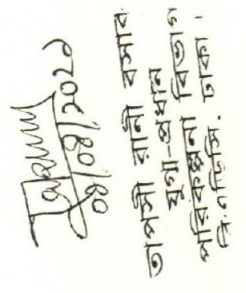 ০৪/০৪/২০২১
তাপসী রানী বসাক
যুগ্ম-প্রধান
পরিকল্পনা বিভাগ
বি.এডিসি. ঢাকা।